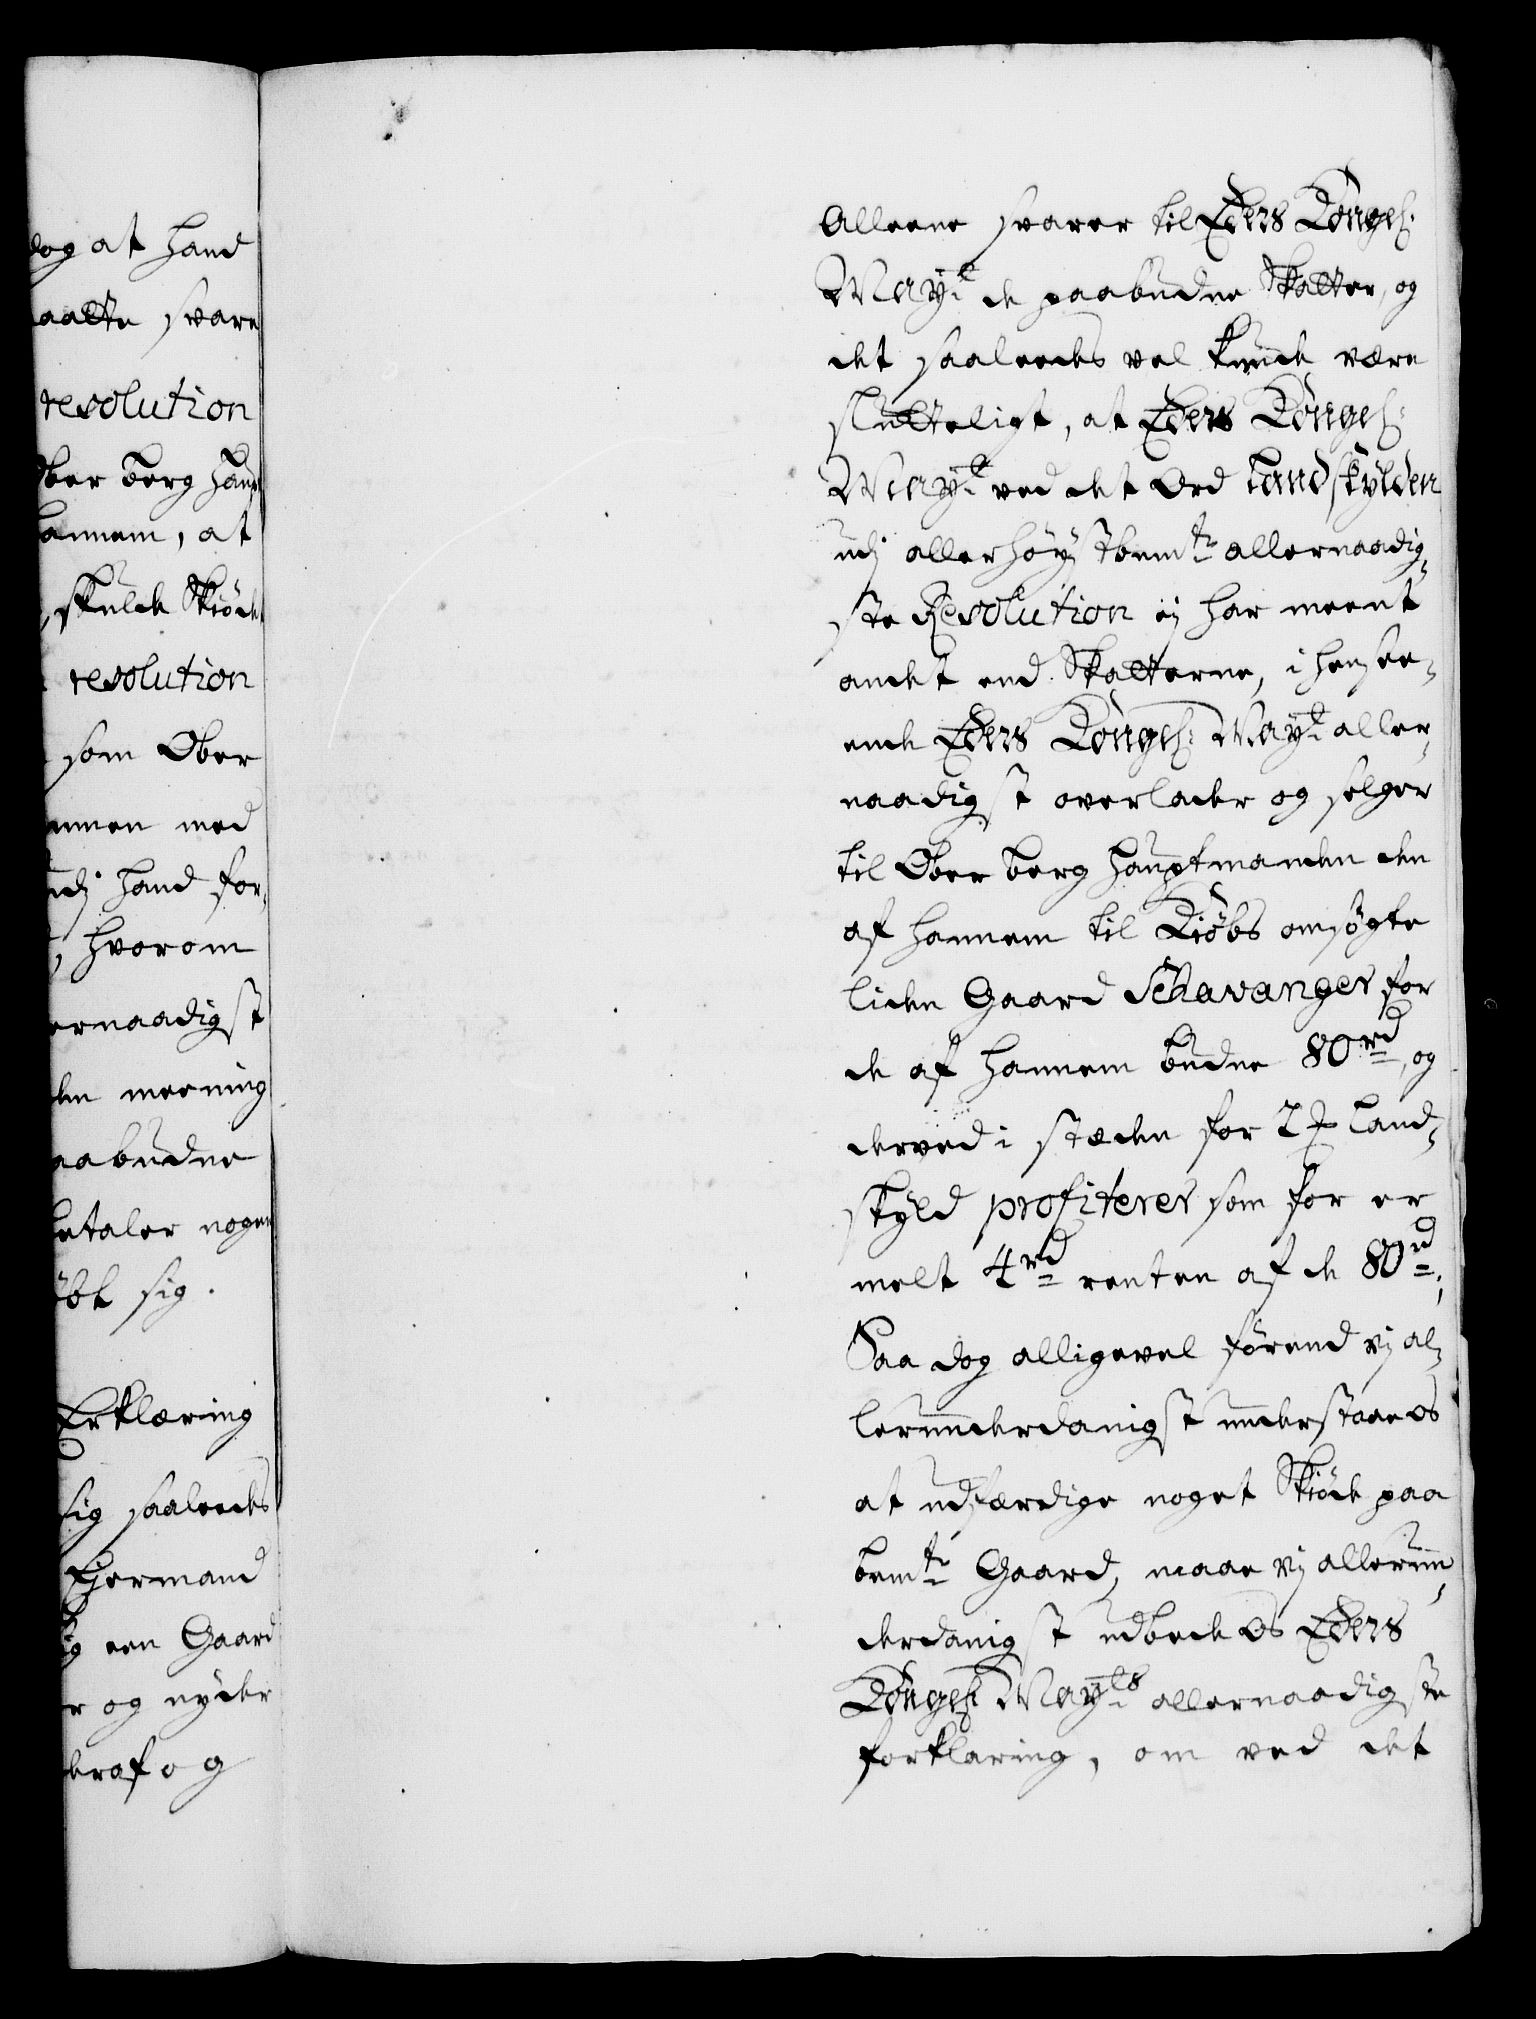 dog at hand
maatte svare
resolution
Ober berg Haupt
hannem, at
, skulde Skiöde
resolution
som Ober
med
udj hand for,
, hvorom
allernaadigst
den meening
paabudne
betaler nogen
kiöbt sig.
Erklæring
sig saaleedes
een Gaard
og nyder
deraf og
Alleene svarer til Eders Kongel:
Mayt de paabudne Skatter, og
det saaleedes vel kunde være
slutteligt, at Eders Kongel:
Mayt ved det Ord Landskylden
udj allerhöystbemte allernaadig,,
ste Resolution ej har meent
andet end Skatterne, i hensee,,
ende Eders Kongel: Mayt aller,,
naadigst overlader og selger
til Ober berg Hauptmanden den
af hannem til Kiöbs omsögte
liden Gaard Schavanger for
de af hannem budne 80 rd, og
derved i stæden for Land,,
skyld profiterer som for er
melt 4 rd renten af de 80 rd;
Saa dog alligevel förend vj al,,
lerunderdanigst understaae os
at udfærdige noget Skiöde paa
bemte Gaard, maae vj allerun,,
derdanigst udbede os Eders
Kongel: Mayts allernaadigste
forklaring, om ved det